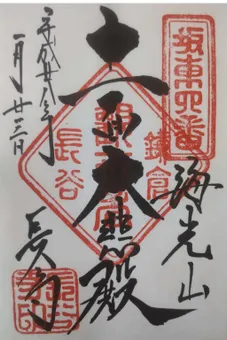 坂東四番
海光山
鎌倉
十一面大悲殿
長谷
平成廿八年
一月廿三日
長谷寺